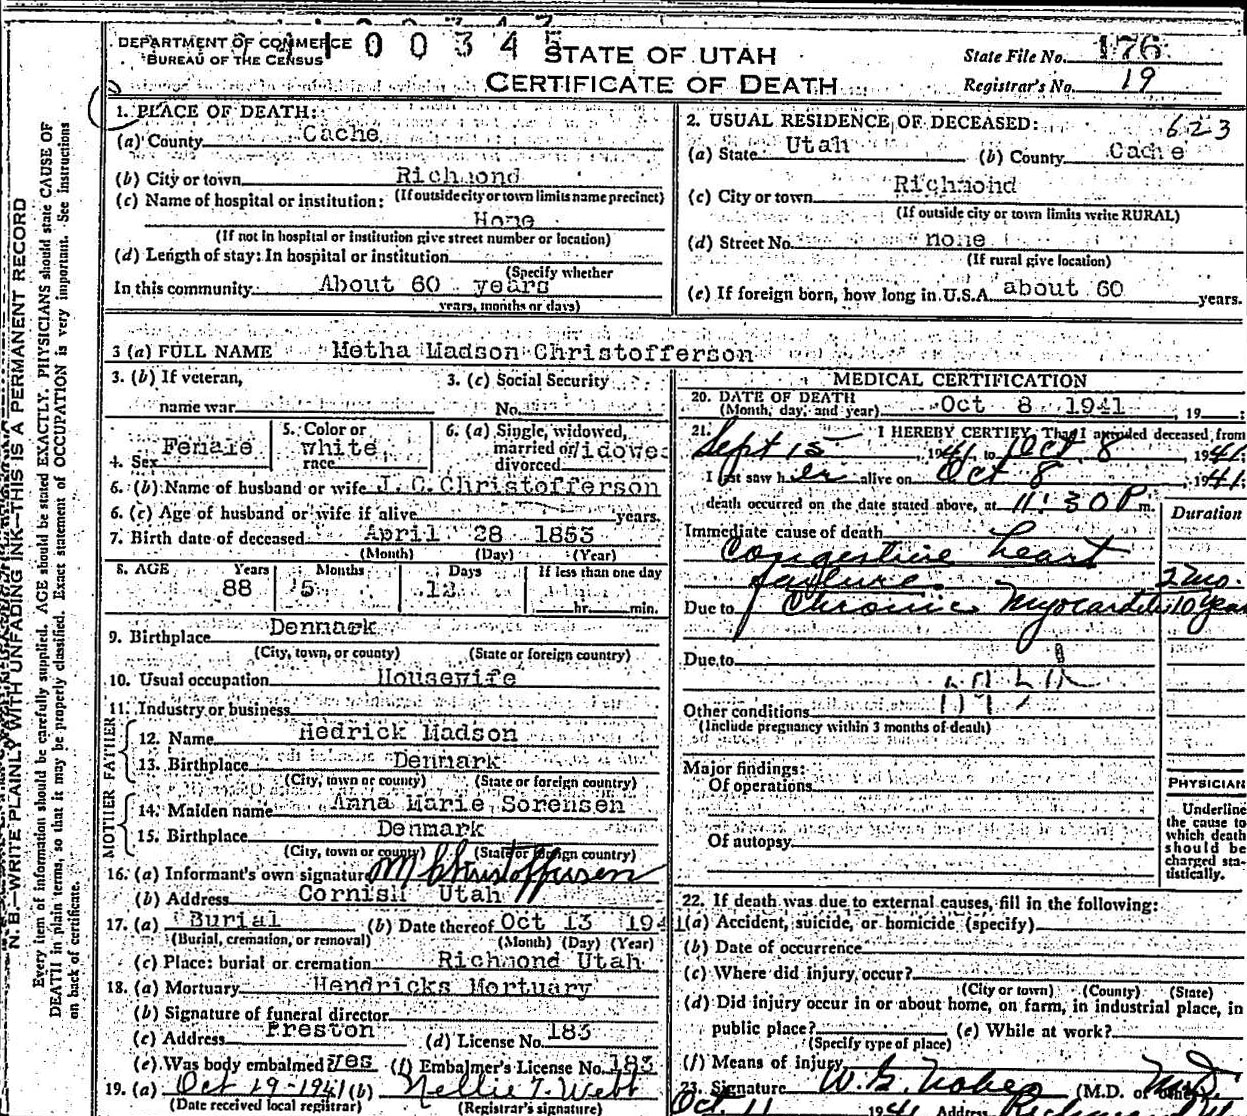 DEPARTMENT OF COMMERCE
BUREAU OF THE CENSUS
STATE OF UTAH
CERTIFICATE OF DEATH
State File No. 176
Registrar's No. 19
N. B.—WRITE PLAINLY WITH UNFADING INK—THIS IS A PERMANENT RECORD
Every item of information should be carefully supplied. AGE should be stated EXACTLY. PHYSICIANS should state CAUSE OF
DEATH in plain terms, so that it may be properly classified. Exact statement of OCCUPATION is very important. See instructions
on back of certificate.
1. PLACE OF DEATH:
(a) County Cache
(b) City or town Richmond
(If outside city or town limits name precinct)
(c) Name of hospital or institution:
Home
(If not in hospital or institution give street number or location)
(d) Length of stay: In hospital or institution
(Specify whether
In this community About 60 years
years, months or days)
2. USUAL RESIDENCE OF DECEASED: 623
(a) State Utah (b) County Cache
(c) City or town Richmond
(If outside city or town limits write RURAL)
(d) Street No. none
(If rural give location)
(e) If foreign born, how long in U.S.A. about 60 years.
3 (a) FULL NAME Metha Madson Christofferson
3. (b) If veteran, name war
3. (c) Social Security No.
4. Sex Female
5. Color or race white
6. (a) Single, widowed, married or divorced Widowe
6. (b) Name of husband or wife J. C. Christofferson
6. (c) Age of husband or wife if alive years.
7. Birth date of deceased April 28 1853
(Month) (Day) (Year)
8. AGE Years Months Days If less than one day
88 5 12 hr. min.
9. Birthplace Denmark
(City, town, or county) (State or foreign country)
10. Usual occupation Housewife
11. Industry or business
FATHER
12. Name Hedrick Madson
13. Birthplace Denmark
(City, town or county) (State or foreign country)
MOTHER
14. Maiden name Anna Marie Sorensen
15. Birthplace Denmark
(City, town or county) (State or foreign country)
16. (a) Informant's own signature M Christoffersen
(b) Address Cornish Utah
17. (a) Burial (b) Date thereof Oct 13 1941
(Burial, cremation, or removal) (Month) (Day) (Year)
(c) Place: burial or cremation Richmond Utah
18. (a) Mortuary Hendricks Mortuary
(b) Signature of funeral director
(c) Address Preston (d) License No. 183
(e) Was body embalmed yes (f) Embalmer's License No. 183
19. (a) Oct 19-1941 (b) Nellie T. Webb
(Date received local registrar) (Registrar's signature)
MEDICAL CERTIFICATION
20. DATE OF DEATH
(Month, day, and year) Oct 8 1941, 19
21. I HEREBY CERTIFY, That I attended deceased from
Sept 15, 1941, to Oct. 8, 1941;
I last saw her alive on Oct 8, 1941;
death occurred on the date stated above, at 11:30 P m.
Duration
Immediate cause of death
Congestive heart
failure. 2 mo.
Due to Chronic Myocarditis 10 year
Due to
Other conditions
(Include pregnancy within 3 months of death)
Major findings:
Of operations
Of autopsy
PHYSICIAN
Underline
the cause to
which death
should be
charged sta-
tistically.
22. If death was due to external causes, fill in the following:
(a) Accident, suicide, or homicide (specify)
(b) Date of occurrence
(c) Where did injury occur?
(City or town) (County) (State)
(d) Did injury occur in or about home, on farm, in industrial place, in
public place? (e) While at work?
(Specify type of place)
(f) Means of injury
23. Signature W. G. (M.D. or other) M.D.
Oct. 11 1941 Address